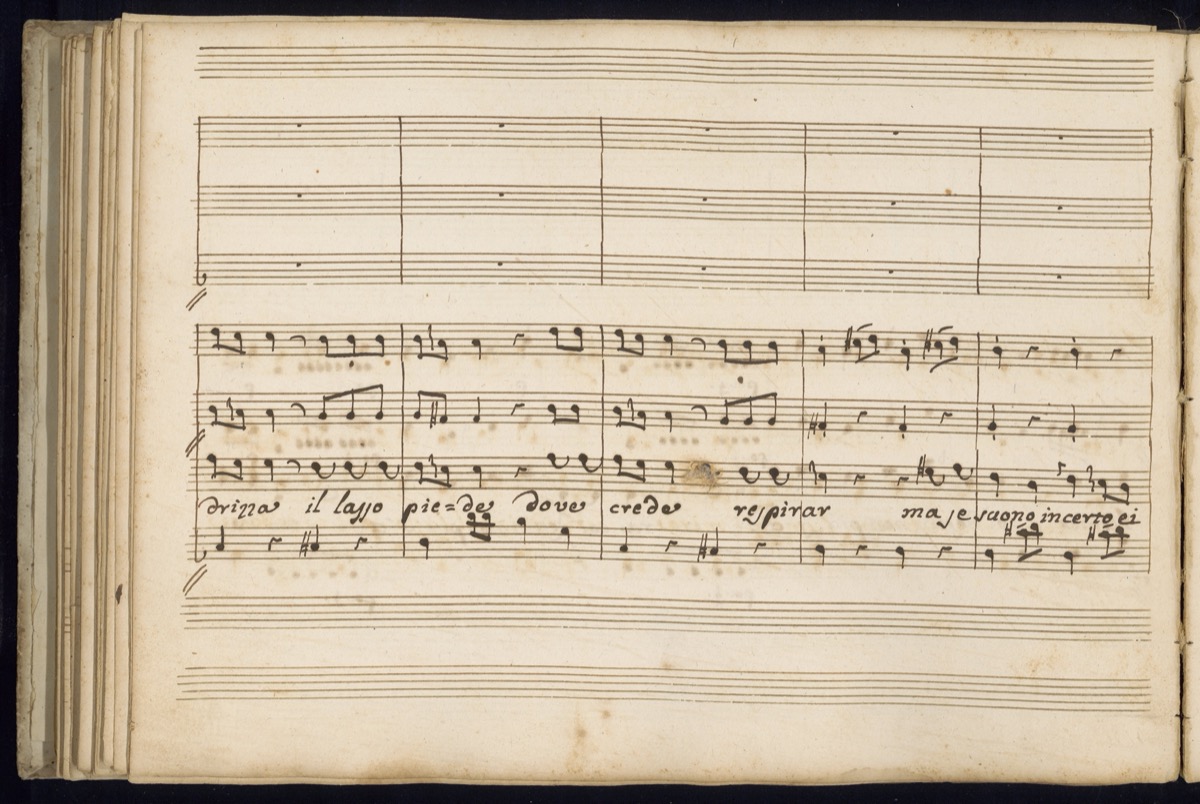 drizza il lasso pie=de dove crede respirar ma se suono incerto ei